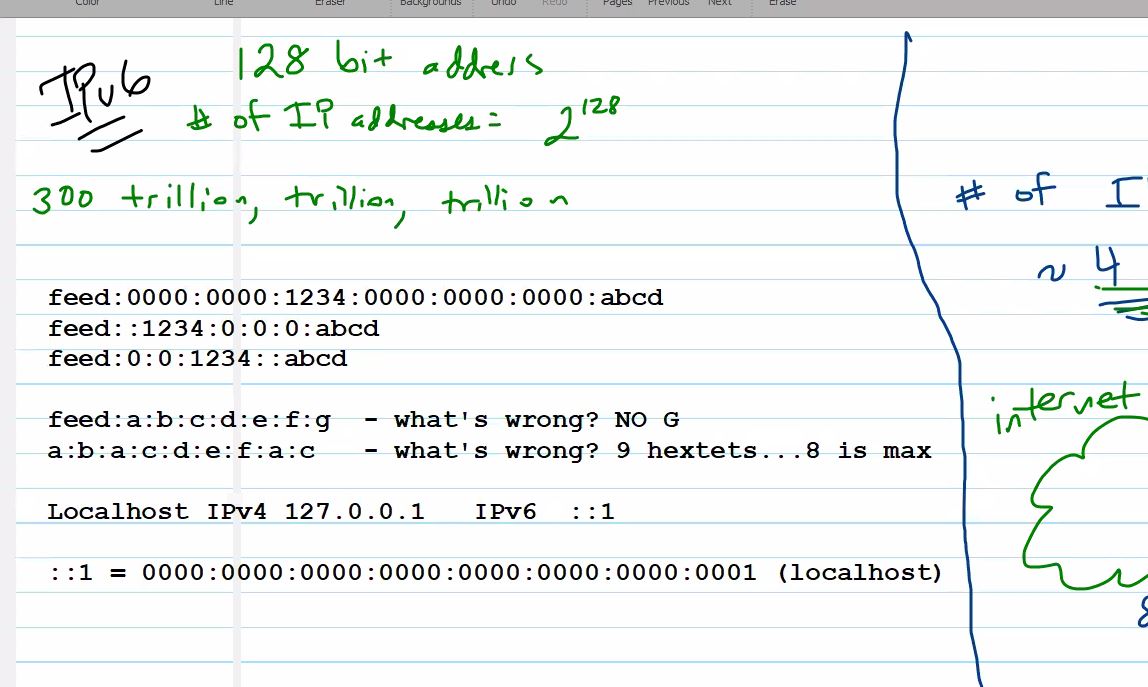 Color Line Eraser Backgrounds Undo Redo Pages Previous Next Erase
IPv6
128 bit address
# of IP addresses = 2^128
300 trillion, trillion, trillion
feed:0000:0000:1234:0000:0000:0000:abcd
feed::1234:0:0:0:abcd
feed:0:0:1234::abcd
feed:a:b:c:d:e:f:g - what's wrong? NO G
a:b:a:c:d:e:f:a:c - what's wrong? 9 hextets...8 is max
Localhost IPv4 127.0.0.1 IPv6 ::1
::1 = 0000:0000:0000:0000:0000:0000:0000:0001 (localhost)
# of I
~ 4
internet